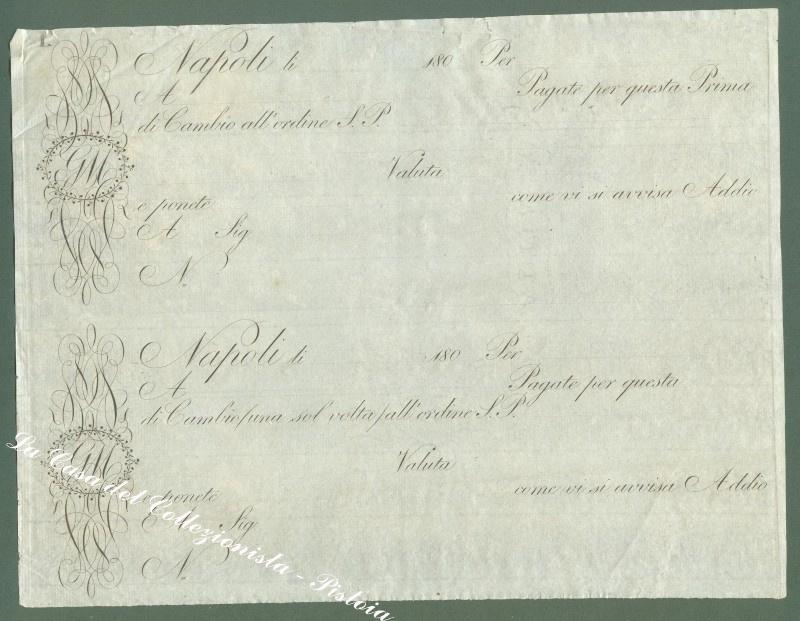 Napoli li 180 Per
A Pagate per questa Prima
di Cambio all'ordine S. P.
Valuta
e ponete come vi si avvisa Addio
A Sig
N.
GM
Napoli li 180 Per
A Pagate per questa
di Cambio (una sol volta) all'ordine S. P.
Valuta
e ponete come vi si avvisa Addio
A Sig
N.
GM
La Casa del Collezionista - Pistoia